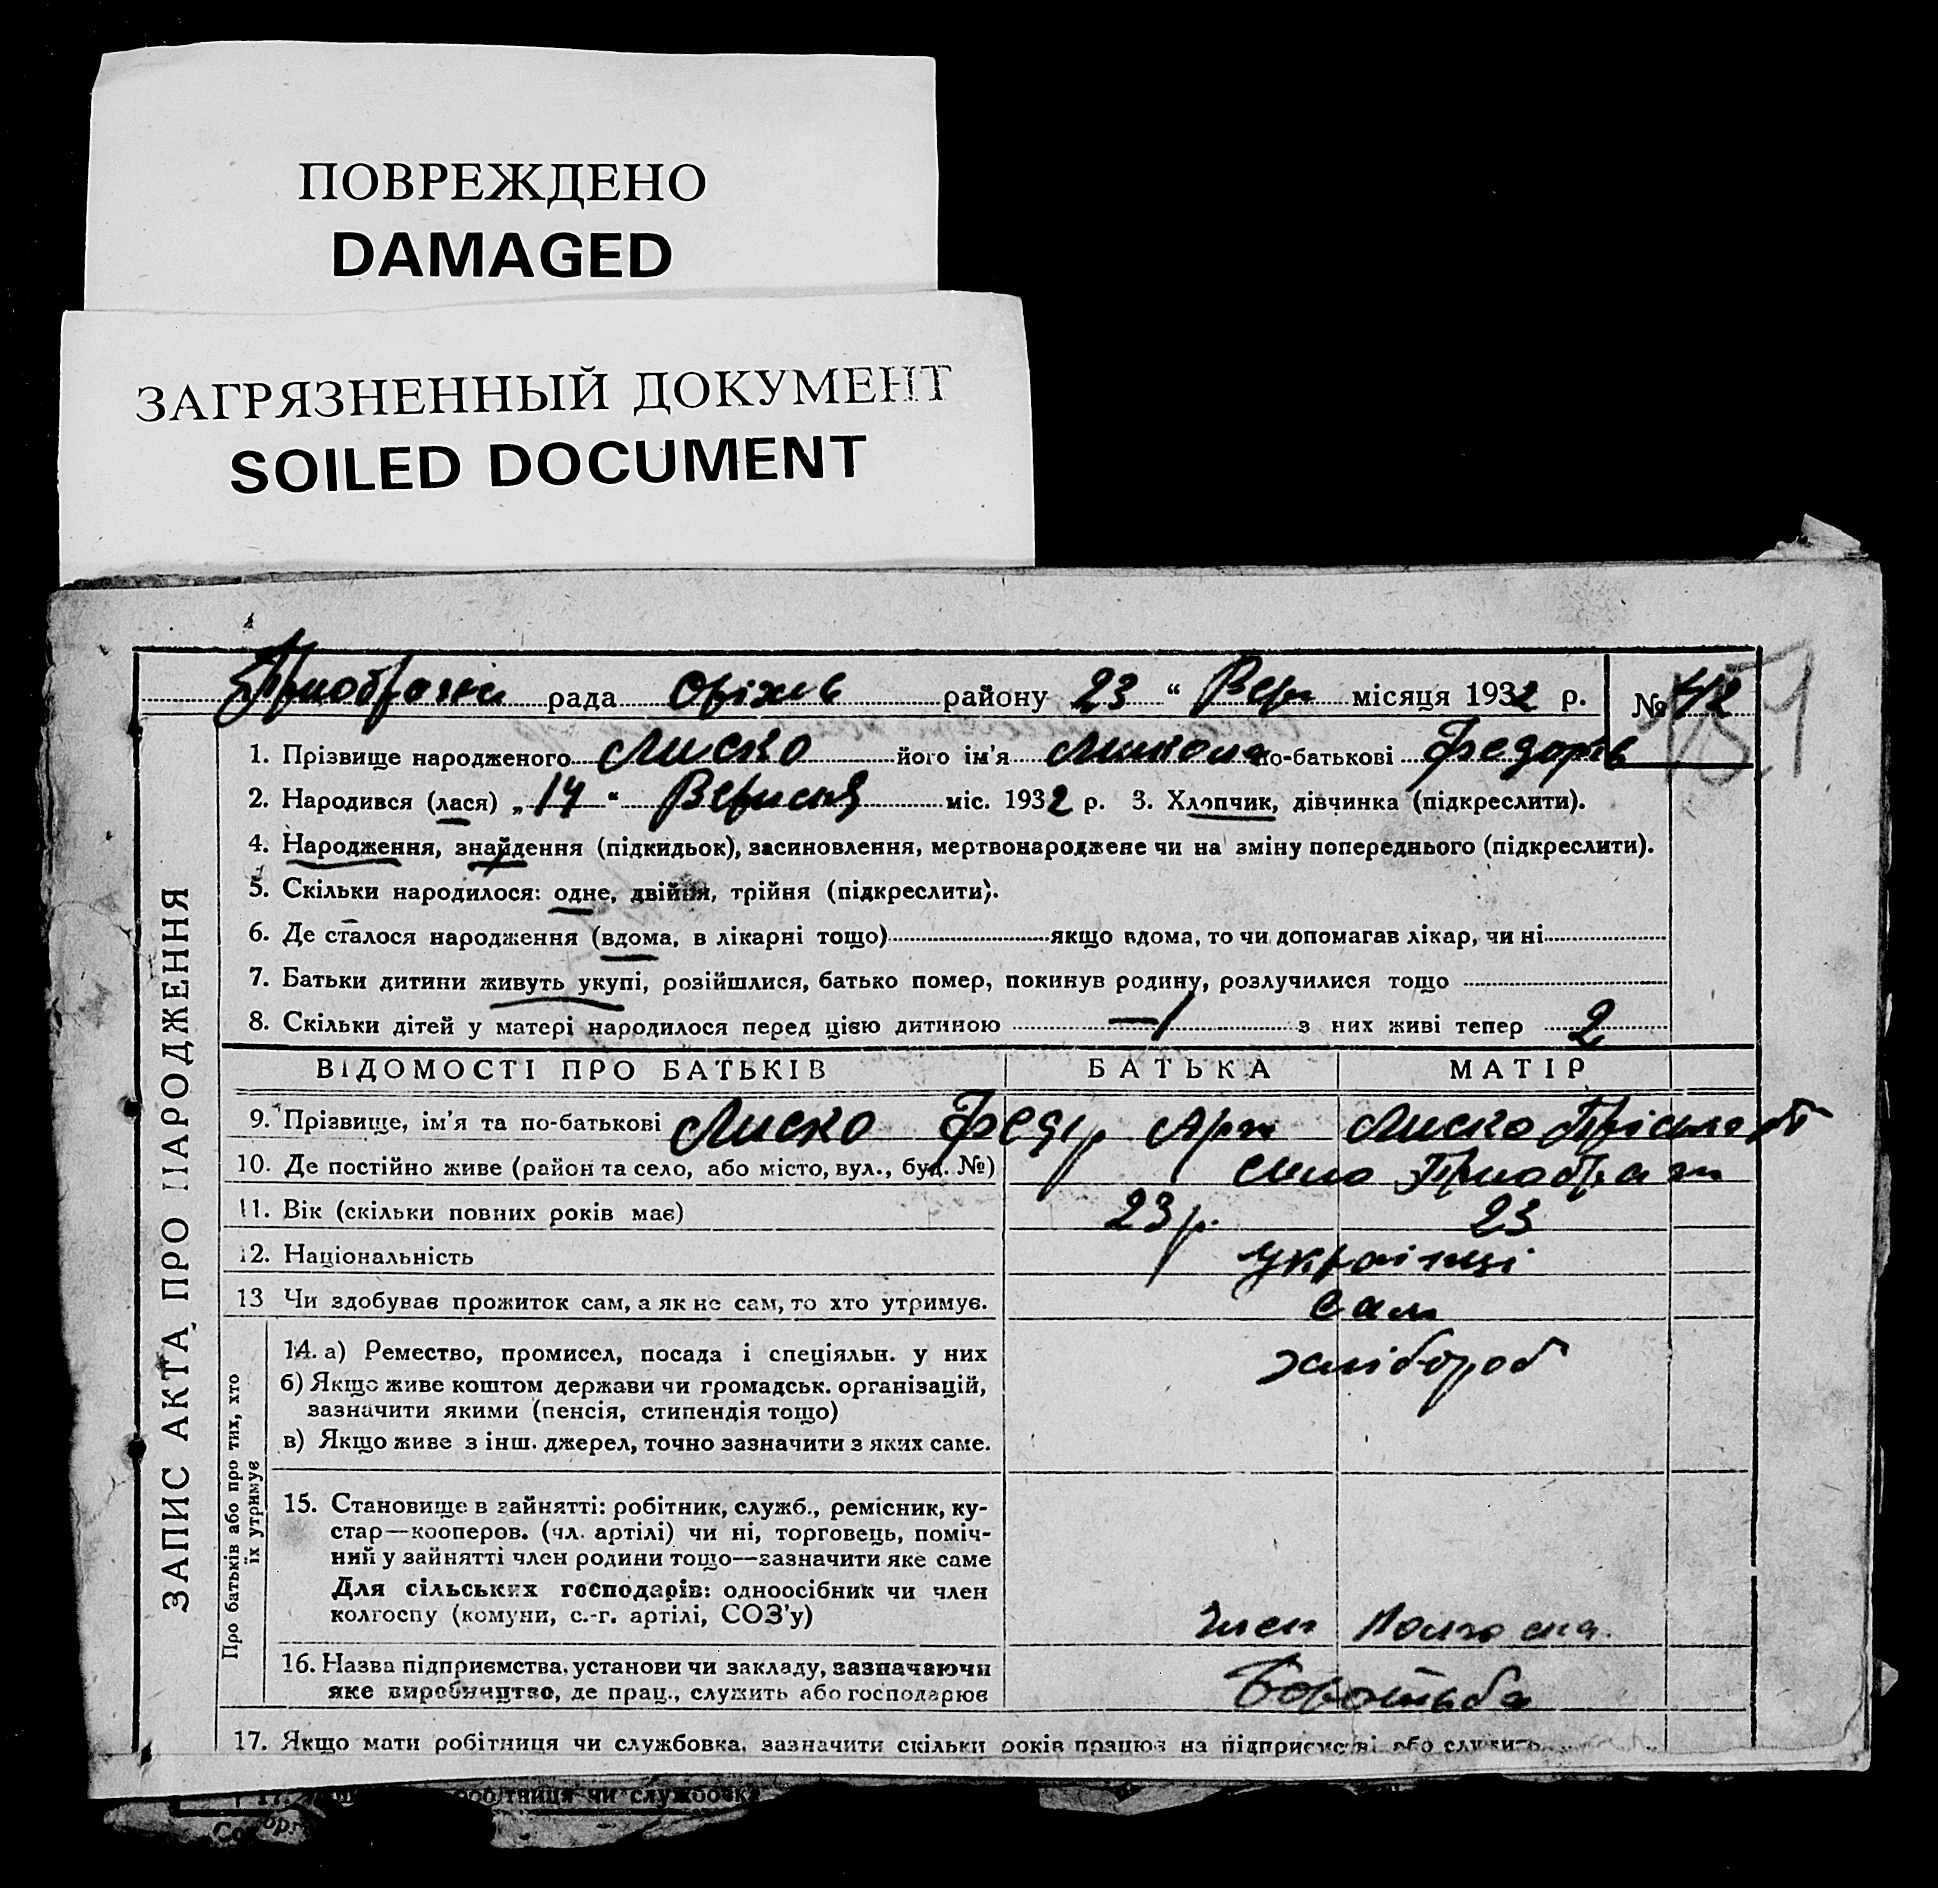 ПОВРЕЖДЕНО
DAMAGED
ЗАГРЯЗНЕННЫЙ ДОКУМЕНТ
SOILED DOCUMENT
рада Оріхів району 23 " Вер місяця 1932 р. № 42
1. Прізвище народженого Лиско його ім'я Микола по-батькові Федорів
2. Народився (лася) „ 14 " Вересня міс. 1932 р. 3. Хлопчик, дівчинка (підкреслити).
4. Народження, знайдення (підкидьок), засиновлення, мертвонароджене чи на зміну попереднього (підкреслити).
5. Скільки народилося: одне, двійня, трійня (підкреслити).
6. Де сталося народження (вдома, в лікарні тощо) якщо вдома, то чи допомагав лікар, чи ні
7. Батьки дитини живуть укупі, розійшлися, батько помер, покинув родину, розлучилися тощо
8. Скільки дітей у матері народилося перед цією дитиною 1 з них живі тепер 2
ЗАПИС АКТА ПРО НАРОДЖЕННЯ
ВІДОМОСТІ ПРО БАТЬКІВ БАТЬКА МАТІР
9. Прізвище, ім'я та по-батькові Лиско Федір Арт Лиско
10. Де постійно живе (район та село, або місто, вул., буд. №) село
11. Вік (скільки повних років має) 23 р. 23
12. Національність українці
13 Чи здобував прожиток сам, а як не сам, то хто утримує. сам
Про батьків або про тих, хто
їх утримує
14. а) Ремество, промисел, посада і спеціяльн. у них хлібороб
б) Якщо живе коштом держави чи громадськ. організацій,
зазначити якими (пенсія, стипендія тощо)
в) Якщо живе з інш. джерел, точно зазначити з яких саме.
15. Становище в зайнятті: робітник, служб., ремісник, ку-
стар—кооперов. (чл. артілі) чи ні, торговець, поміч-
ний у зайнятті член родини тощо—зазначити яке саме
Для сільських господарів: одноосібник чи член
колгоспу (комуни, с.-г. артілі, СОЗ'у) член колгоспа.
16. Назва підприємства, установи чи закладу, зазначаючи
яке виробництво, де прац., служить або господарює Боротьба
17. Якщо мати робітниця чи службовка, зазначити скільки років працює на підприємстві або служить
робітниця чи службовка